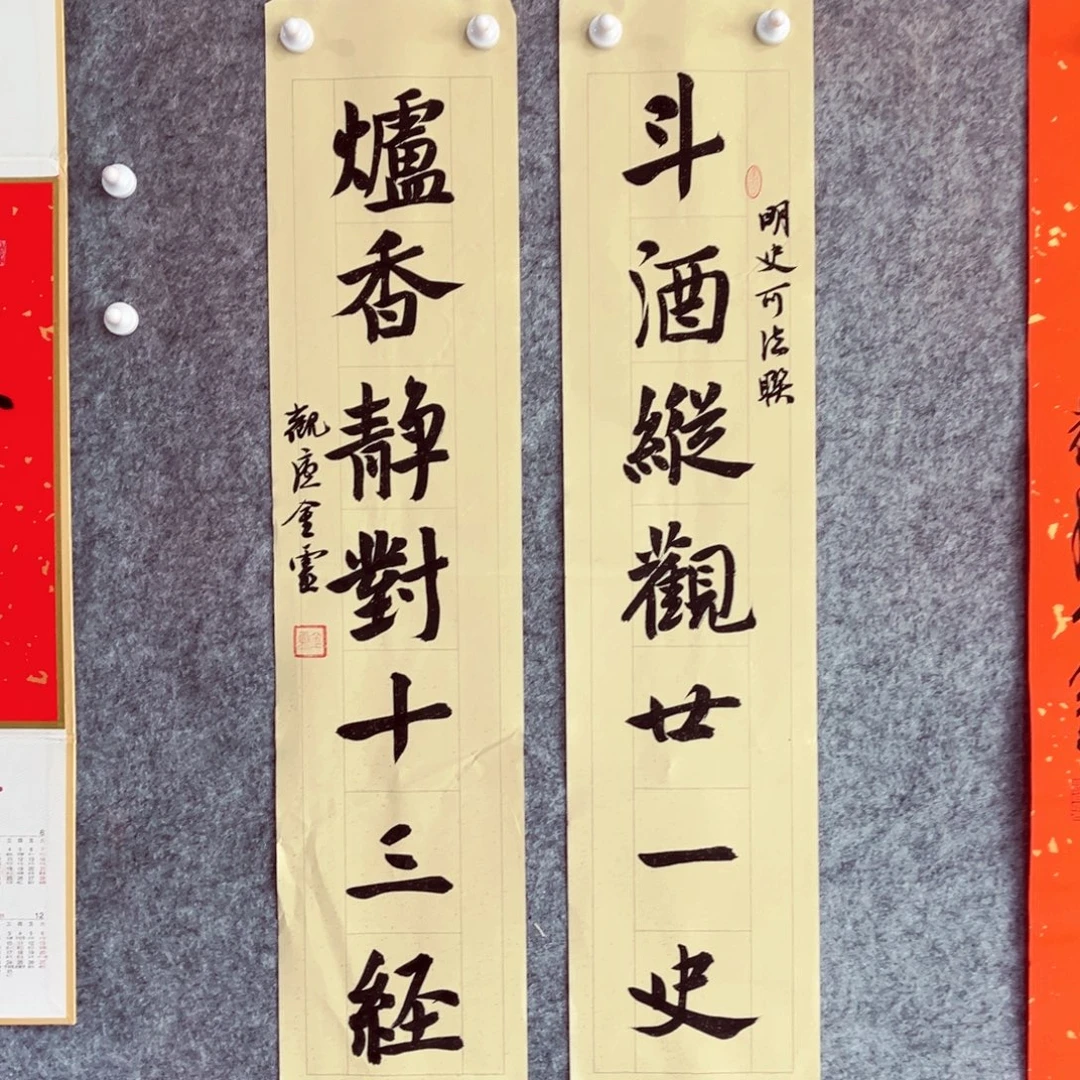 斗酒縱觀廿一史
明史可法联
爐香静對十三経
觀廬金雲